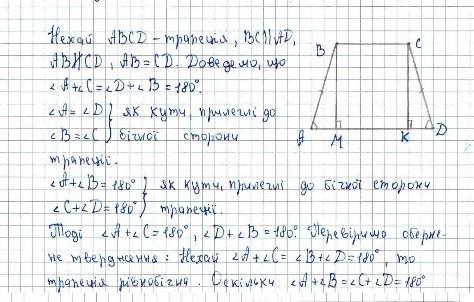 Нехай ABCD - трапеція, BC||AD,
AB∦CD, AB=CD. Доведемо, що
∠A+∠C=∠D+∠B=180°.
∠A=∠D } як кути, прилеглі до
∠B=∠C } бічної сторони
трапеції.
∠A+∠B=180° } як кути, прилеглі до бічної сторони
∠C+∠D=180° } трапеції.
Тоді ∠A+∠C=180°, ∠D+∠B=180°. Перевіримо оберне-
не твердження: Нехай ∠A+∠C=∠B+∠D=180°, то
трапеція рівнобічна. Оскільки ∠A+∠B=∠C+∠D=180°
B
C
A
M
K
D